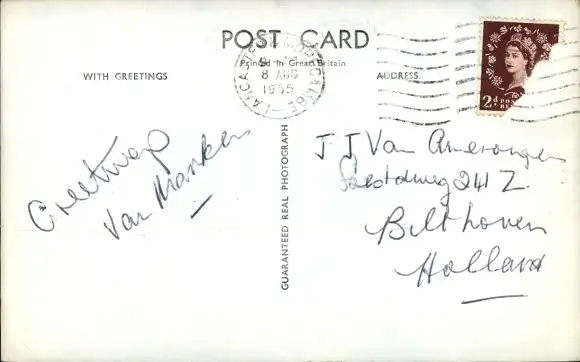 POST CARD
Printed in Great Britain
WITH GREETINGS
ADDRESS
LANCASTER & MORECAMBE
8 AUG
1955
2D
GUARANTEED REAL PHOTOGRAPH
Greetings
Van
J J Van Amerongen
241 Z.
Bilthoven
Holland